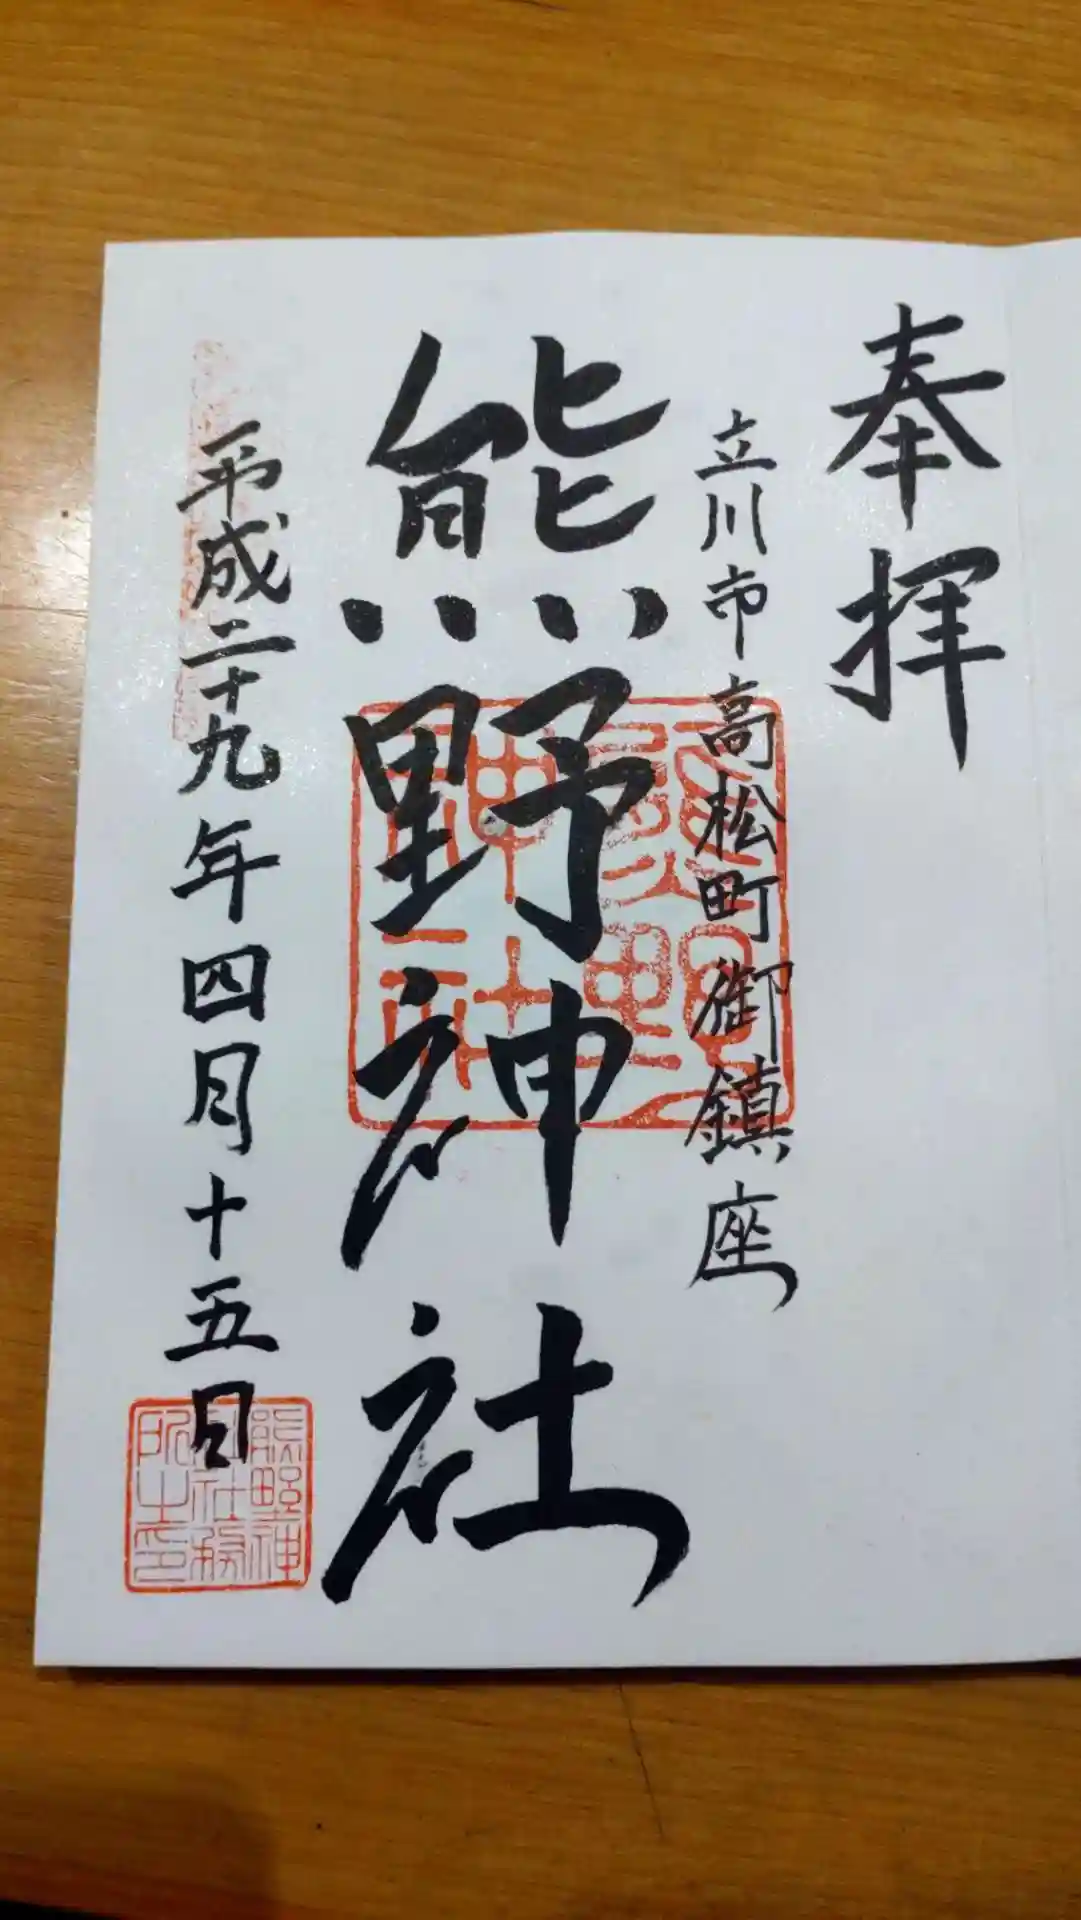 奉拝
立川市高松町御鎮座
熊野神社
熊野神社
平成二十九年四月十五日
熊野神社社務所之印